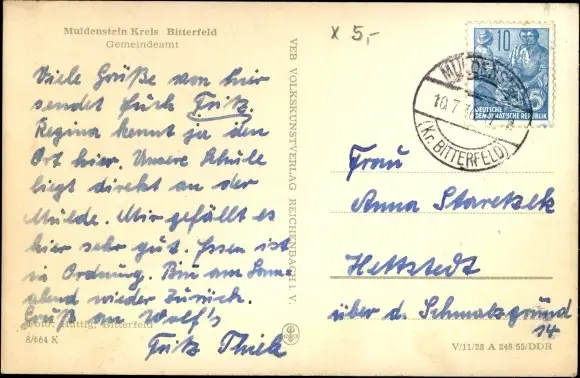 Muldenstein Kreis Bitterfeld
Gemeindeamt
x 5,-
Viele Grüße von hier
sendet Euch Fritz.
Regina kennt ja den
Ort hier. Unsere Schule
liegt direkt an der
Mulde. Mir gefällt es
hier sehr gut. Essen ist
in Ordnung. Bin am Sonn-
abend wieder zurück.
Gruß an Wolf's
Fritz Thiel
Foto: Huttig, Bitterfeld
8/664 K
VEB VOLKSKUNSTVERLAG REICHENBACH I. V.
10
DEUTSCHE
DEMOKRATISCHE REPUBLIK
10.7.
(Kr. BITTERFELD)
Frau
Anna
Hettstedt
über d. Schmalzgrund
14
V/11/28 A 246/55/DDR